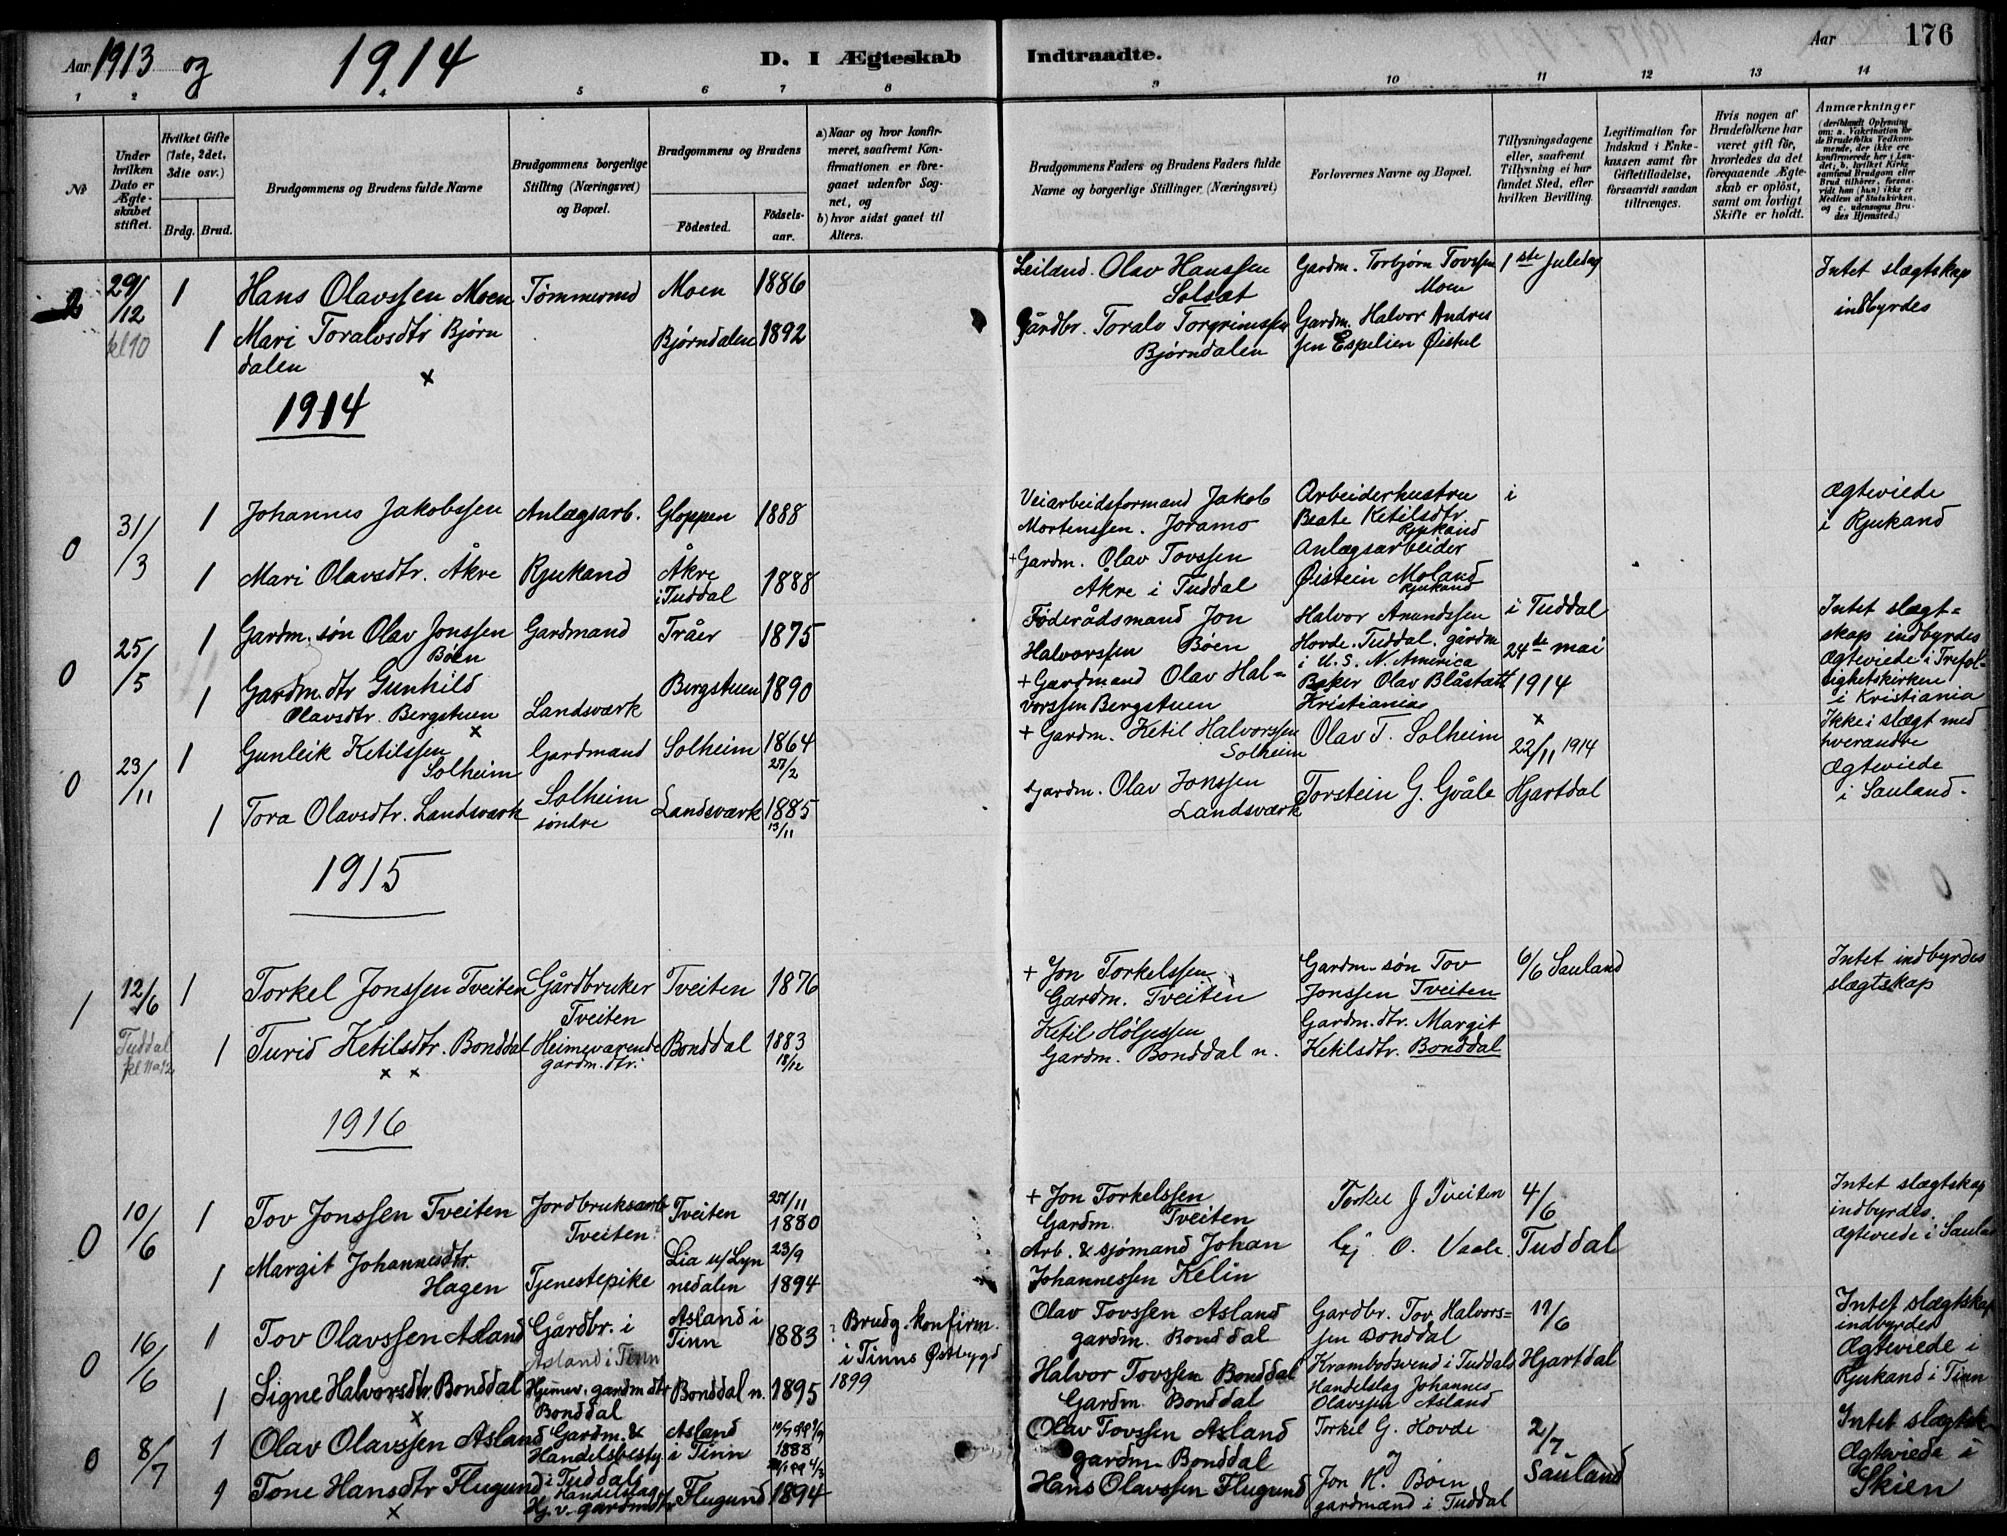 Aar 1913 og 1914
D. I Ægteskab Indtraadte.
Aar 176
1 2 4 5 6 7 8 9 10 11 12 13 14
No
Under hvilken Dato er Ægteskabet stiftet.
Hvilket Gifte (1ste, 2det, 3die osv.)
Brdg. Brud.
Brudgommens og Brudens fulde Navne
Brudgommens borgerlige Stilling (Næringsvei) og Bopæl.
Brudgommens og Brudens
Födested.
Födsels-aar.
a) Naar og hvor konfirmeret, saafremt Konfirmationen er foregaaet udenfor Sognet, og
b) hvor sidst gaaet til Alters.
Brudgommens Faders og Brudens Faders fulde Navne og borgerlige Stillinger (Næringsvei)
Forlovernes Navne og Bopæl.
Tillysningsdagene eller, saafremt Tillysning ei har fundet Sted, efter hvilken Bevilling.
Legitimation for Indskud i Enkekassen samt for Giftetilladelse, forsaavidt saadan tiltrænges.
Hvis nogen af Brudefolkene har været gift för, hvorledes da det foregaaende Ægteskab er oplöst, samt om lovligt Skifte er holdt.
Anmærkninger
(deriblandt Oplysning om: a. Vakcination for de Brudefolks Vedkommende, der ikke ere konfirmerede her i Landet; b. hvilket Kirkesamfund Brudgom eller Brud tilhörer, forsaavidt han (hun) ikke er Medlem af Statskirken, og c. udensogns Brudes Hjemsted.)
2 29/12 kl 10
1 Hans Olavssen Moen Tömmermd Moen 1886
Leiland. Olav Hanssen Solsæt
Gardm. Torbjørn Tovssen Moen
1ste Juledag
Intet slægtskap indbyrdes
1 Mari Toralvsdtr Bjørndalen Bjørndalen 1892
x
Gårdbr. Toralv Torgrimssen Bjørndalen
Gardm. Halvor Andres
sen Espelien
1914
0 31/3
1 Johannes Jakobssen Anlægsarb. Gloppen 1888
Veiarbeidsformand Jakob Mortenssen. Joramo
Arbeiderhustru Beate Ketilsdtr. Rjukand
i
Ægteviede i Rjukand
1 Mari Olavsdtr. Åkre Rjukand Åkre i Tuddal 1888
+ Gardm. Olav Tovssen Åkre i Tuddal
Anlægsarbeider Øistein Moland Rjukand
0 25/5
1 Gardm. søn Olav Jonssen Bøen Gardmand Tråer 1875
Föderådsmand Jon Halvorssen Bøen
Halvor Amundssen Hovde. Tuddal. gårdm i U.S. N. America
i Tuddal 24de mai 1914
Intet slægtskap indbyrdes
Ægteviede i Trefoldighetskirken i Kristiania
1 Gardm. dtr Gunhild Olavsdtr. Bergstuen Landsværk Bergstuen 1890
x
+ Gardmand Olav Halvorssen Bergstuen
Baker Olav Blåstatt Kristiania
0 23/11
1 Gunleik Ketilssen Solheim Gardmand Solheim 1864
+ Gardm. Ketil Halvorssen Solheim
Olav T. Solheim
x 22/11 1914
Ikke i slægt med hverandre
Ægteviede i Sauland.
1 Tora Olavsdtr. Landsværk Solheim söndre Landsværk 1885 13/11
Gardm. Olav Jonssen Landsværk
Torstein G. Gvåle
Hjartdal
1915
1 12/6 Tuddal kl 11 a 12
1 Torkel Jonssen Tveiten Gårdbruker Tveiten Tveiten 1876
+ Jon Torkelssen Gardm. Tveiten
Gardm. søn Tov Jonssen Tveiten
6/6 Sauland
Intet indbyrdes slægtskap
1 Turid Ketilsdtr. Bonddal Heimeværende gardm. dtr. Bonddal 1883 18/12
x x
Ketil Høljessen Gardm. Bonddal n.
Gardm. dtr. Margit Ketilsdtr. Bonddal
1916
0 10/6
1 Tov Jonssen Tveiten Jordbruksarb Tveiten Tveiten 27/11 1880
+ Jon Torkelssen Gardm. Tveiten
Torkel J Tveiten
4/6
Intet slægtskap indbyrdes.
Ægteviede i Sauland
1 Margit Johannesdtr. Hagen Tjenestepike Lia u/Lynnedalen 23/9 1894
Arb. & sjømand Johan Johannessen Kelin
O. Vaale.
Tuddal
0 16/6
1 Tov Olavssen Asland Gårdbr. i Asland i Tinn Asland i Tinn 1883
Brudg. konfirm. i Tinns Østbygd 1899
Olav Tovssen Asland gardm. Bonddal
Gardbr. Tov Halvorssen Bonddal
11/6
Intet slægtskap indbyrdes
Ægteviede i Rjukand i Tinn
1 Signe Halvorsdtr. Bonddal Hjemev. gardm dtr Bonddal Bonddal n. 1895
x
Halvor Tovssen Bonddal Gardm. Bonddal
Krambodsvend i Tuddals Handelslag Johannes Olavssen Asland
Hjartdal
0 8/7
1 Olav Olavssen Asland Gardm. & Handelsbesty. i Tuddals Handelslag Asland i Tinn 1888
Olav Tovssen Asland gardm Bonddal
Torkel G. Hovde
2/7
Intet slægtsk.
Ægteviede i Skien
1 Tone Hansdtr Flugund Hj. v. gardmdtr Flugund 1894
x
Hans Olavssen Flugund
Jon H. Bøen gardmænd i Tuddal
Sauland